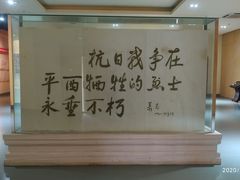 抗日战争在
平西牺牲的烈士
永垂不朽
2020/